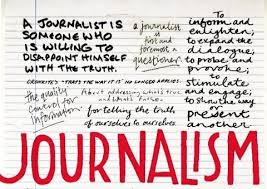 A JOURNALIST IS
SOMEONE WHO
IS WILLING TO
DISAPPOINT HIMSELF
WITH THE TRUTH.
a journalist
is
first and
foremost a
questioner.
To
inform and
enlighten;
to expand the
dialogue;
to probe and
provoke;
to
stimulate
and engage;
to show the way
present
another
CRONKITE'S "THAT'S THE WAY IT IS" NO LONGER APPLIES.
the quality
control for
information.
About addressing what's true
and what's false.
for telling the truth
of ourselves to ourselves.
JOURNALISM